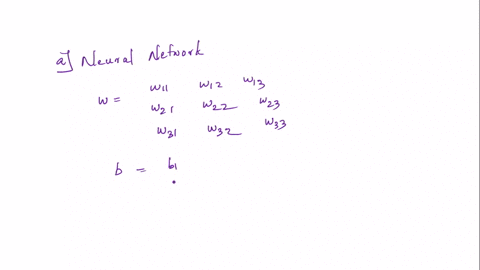 a] Neural Network
w11 w12 w13
w = w21 w22 w23
w31 w32 w33
b = b1